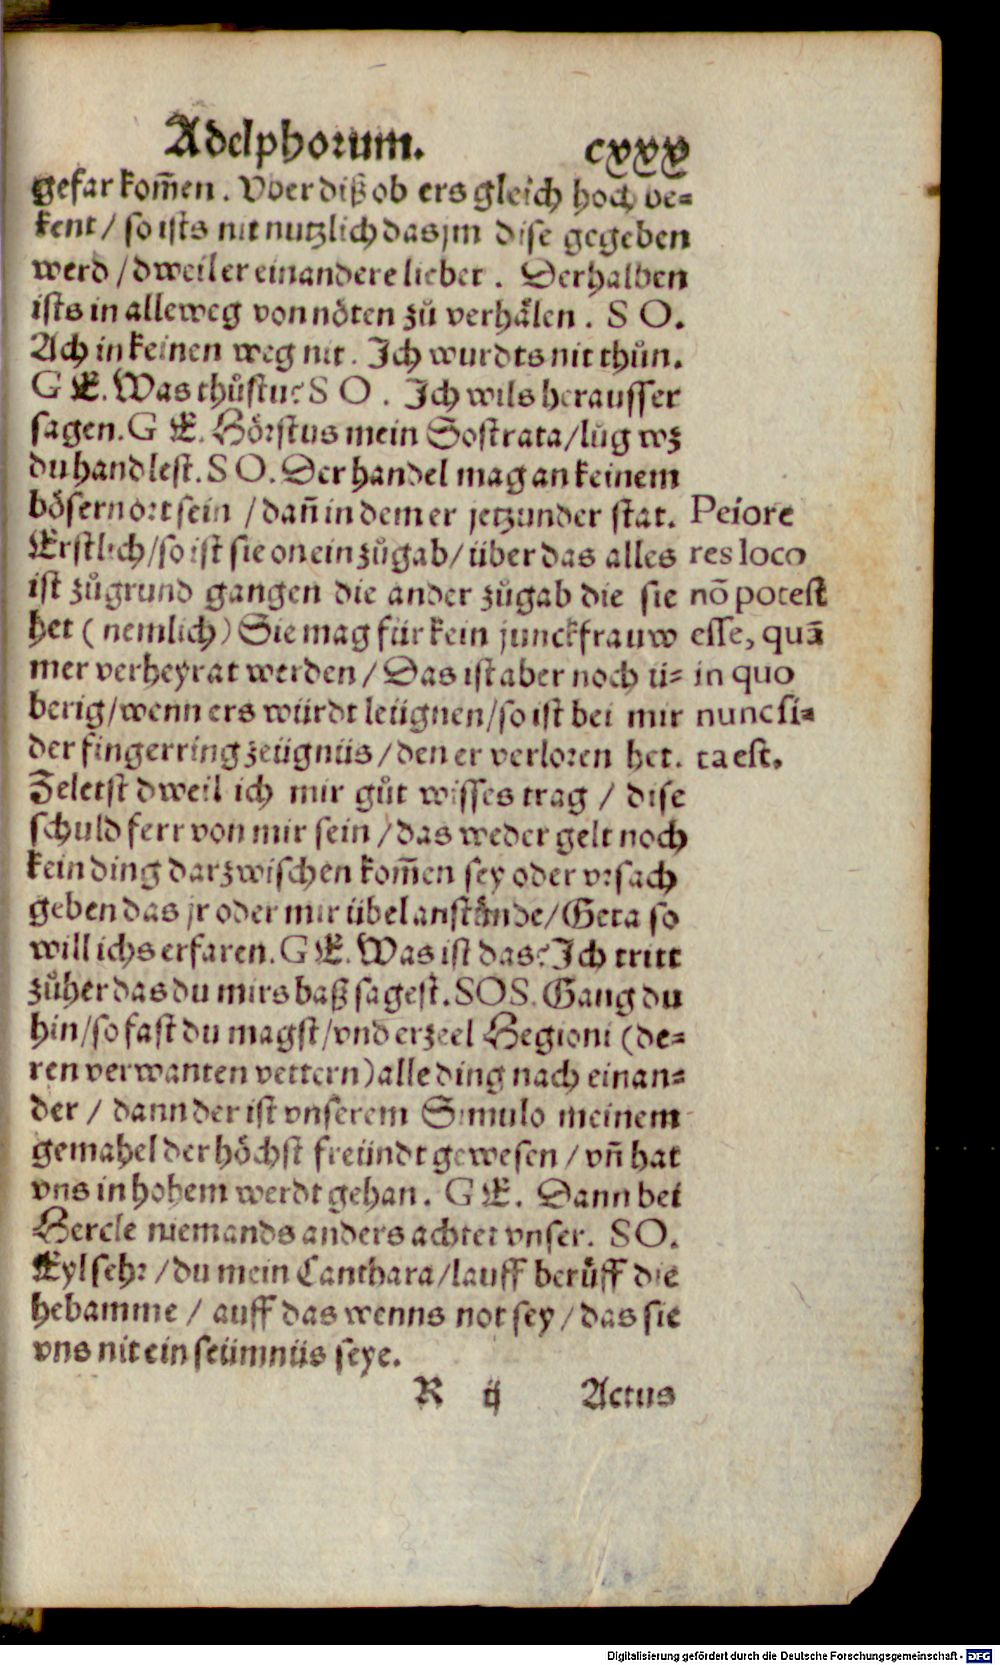 Adelphorum. cxxx
gefar kom̃en. Vber diß ob ers gleich hoch be⸗
kent / so ists nit nutzlich das jm dise gegeben
werd / dweil er ein andere liebet. Derhalben
ists in alleweg von nöten zů verhälen. S O.
Ach in keinen weg nit. Ich wurdts nit thůn.
G E. Was thůstu? S O. Ich wils herausser
sagen. G E. Hörstus mein Sostrata / lůg wz
du handlest. S O. Der handel mag an keinem
bösern ort sein / dañ in dem er jetzunder stat.
Erstlich / so ist sie on ein zůgab / über das alles
ist zůgrund gangen die ander zůgab die sie
het (nemlich) Sie mag für kein junckfrauw
mer verheyrat werden / Das ist aber noch ü⸗
berig / wenn ers würdt leügnen / so ist bei mir
der fingerring zeügnüs / den er verloren het.
Zeletst dweil ich mir gůt wisses trag / dise
schuld ferr von mir sein / das weder gelt noch
kein ding darzwischen kom̃en sey oder vrsach
geben das jr oder mir übel anstände / Geta so
will ichs erfaren. G E. Was ist das? Ich tritt
zůher das du mirs baß sagest. SOS. Gang du
hin / so fast du magst / vnd erzeel Hegioni (de⸗
ren verwanten vettern) alle ding nach einan⸗
der / dann der ist vnserem Simulo meinem
gemahel der höchst freündt gewesen / vñ hat
vns in hohem werdt gehan. G E. Dann bei
Hercle niemands anders achtet vnser. S O.
Eyl sehr / du mein Canthara / lauff berůff die
hebamme / auff das wenns not sey / das sie
vns nit ein seümnüs seye.
R ij Actus
Peiore
res loco
nõ potest
esse, quã
in quo
nunc si⸗
ta est.
Digitalisierung gefördert durch die Deutsche Forschungsgemeinschaft - DFG